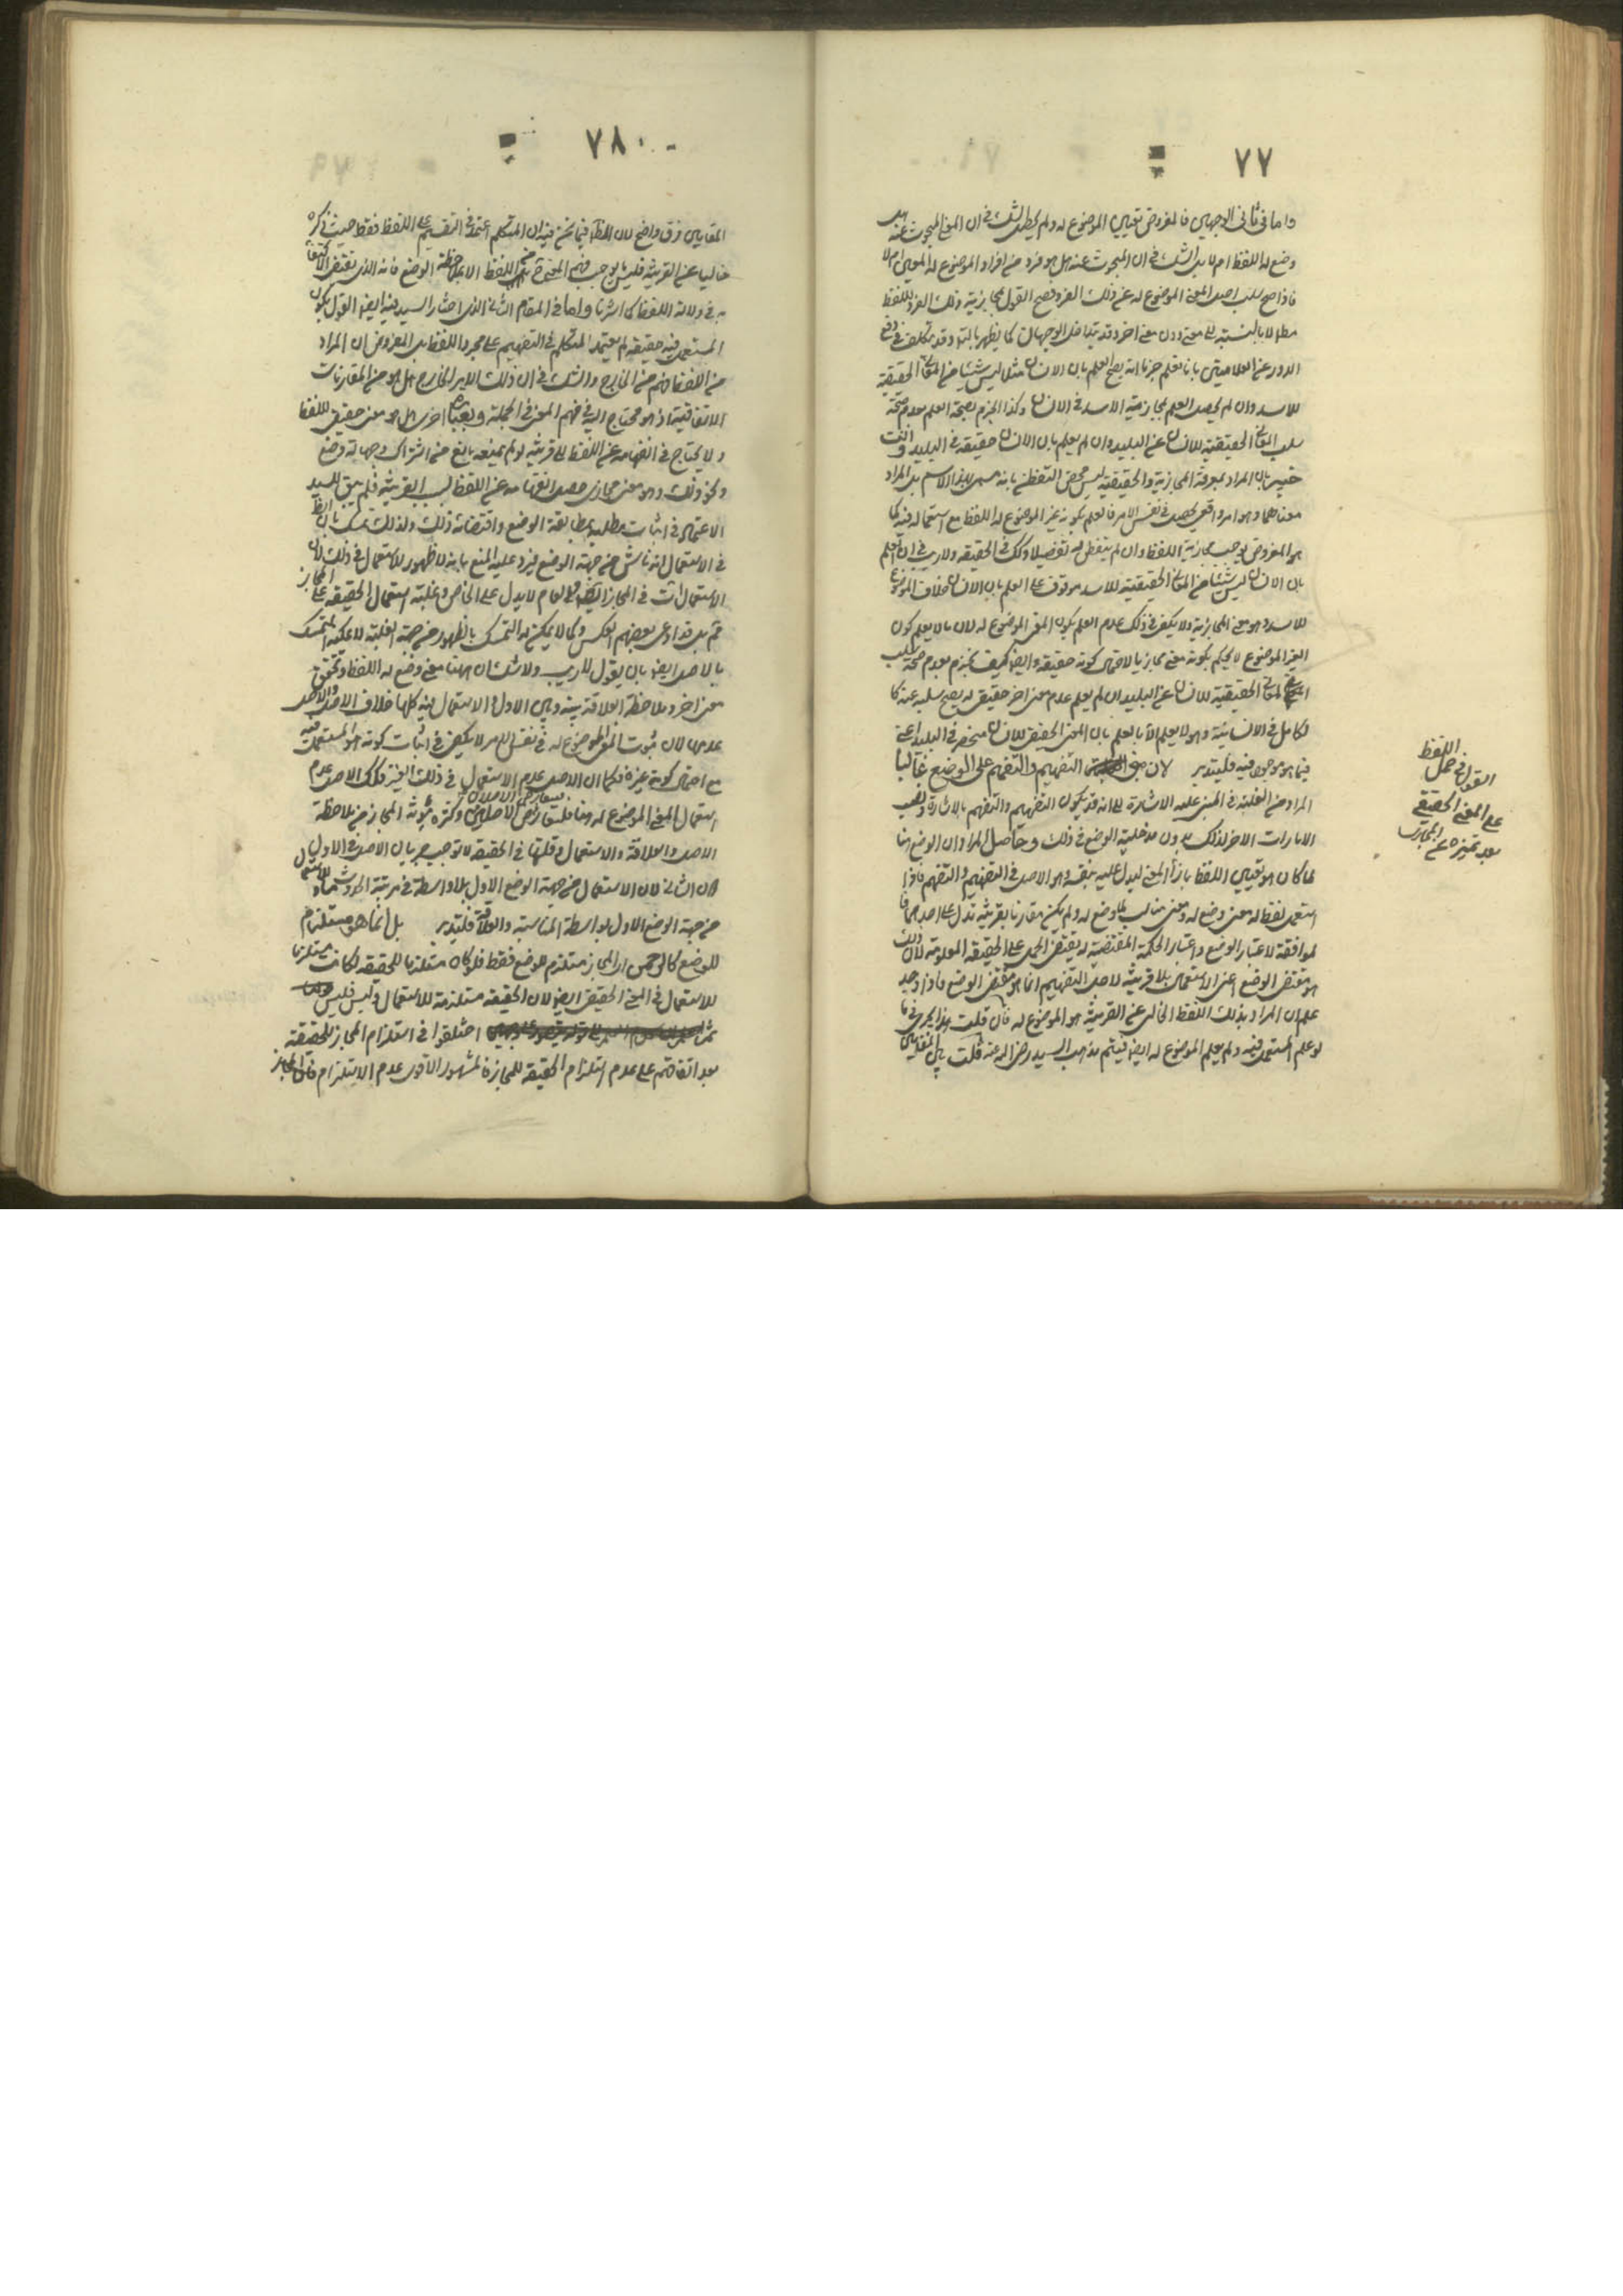 ٧٧
واما فى ثانى الوجهين فالمفروض تعيين الموضوع له ولم يحصل الشك فى ان المعنى المبحوث عنه هل
وضع له اللفظ ام لا بل الشك فى ان المبحوث عنه هل هو فرد من افراد الموضوع له المعين ام لا
فاذا صح سلب اصل المعنى الموضوع له عن ذلك الفرد فصح القول بمجازية ذلك الفرد للفظ
مطلقا لا بالنسبة الى معنى دون معنى اخر وقد يتداخل الوجهان كما يظهر بالتأمل وقد يتكلف فى دفع
الدور عن العلامتين بانا نعلم جزما انه يصح العلم بان الانسان مثلا ليس شيئا من المعانى الحقيقية
للاسد وان لم يحصل العلم بمجازية الاسد فى الانسان وكذا الجزم بصحة العلم بعدم صحة
سلب المعانى الحقيقية للانسان عن البليد وان لم يعلم بان الانسان حقيقة فى البليد وانت
خبير بان المراد بمعرفة المجازية والحقيقية ليس محض التفطن بانه مسمى بهذا الاسم بل المراد
معناهما وهو امر واقعى يحصل فى نفس الامر فالعلم بكونه غير الموضوع له اللفظ مع استعماله فيه كما
هو المفروض يوجب مجازية اللفظ وان لم يتفطن له تفصيلا وكذلك فى الحقيقة ولا ريب فى ان العلم
بان الانسان ليس شيئا من المعانى الحقيقية للاسد موقوف على العلم بان الانسان خلاف الموضوع
للاسد وهو معنى المجازية ولا يكفى فى ذلك عدم العلم بكون المعنى الموضوع له لان ما لا يعلم كون
الغير الموضوع لا يحكم بكونه معنى مجازيا لاحتمال كونه حقيقة وايضا كيف يجزم بعدم صحة سلب
المعانى الحقيقية للانسان عن البليد ان لم يعلم عدم معنى اخر حقيقى له يصح سلبه عنه كا
لكامل فى الانسانية وهو لا يعلم الا بالعلم بان المعنى الحقيقى للانسان منحصر فى البليد اعنى
فيما هو موجود فيه فليتدبر لان مبنى التفهيم والتفهم على الوضع غالبا
المراد من الغلبة فى المبنى عليه الاشارة الى انه قد يكون التفهيم والتفهم بالاشارة ونصب
الامارات الاخر لذلك بدون مدخلية الوضع فى ذلك وحاصل المراد ان الوضع هنا
لما كان هو تعيين اللفظ بازاء المعنى ليدل عليه بنفسه وهو الاصل فى التفهيم والتفهم فاذا
استعمل لفظ له معنى وضع له ومعنى مناسب لما وضع له ولم يكن مقارنا بقرينة تدل على احدهما فا
لموافقة لاعتبار الوضع واعتبار الحكمة المقتضية له يقتضى الحمل على الحقيقة المعلومة لان ذلك
هو مقتضى الوضع اعنى الاستعمال بلا قرينة لاجل التفهيم انما هو مقتضى الوضع فاذا وجد
علم ان المراد بذلك اللفظ الخالى عن القرينة هو الموضوع له فان قلت هذا يجرى فيما
لو علم المستعمل فيه ولم يعلم الموضوع له ايضا فيتم مذهب السيد رضى الله عنه قلت بين المقامين
القول فى حمل اللفظ
على المعنى الحقيقى
بعد تميزه عن المجازى
٧٨
المقامين فرق واضح لان الظاهر فيما نحن فيه ان المتكلم اعتمد فى التفهيم على اللفظ فقط حيث ذكره
خاليا عن القرينة فليس ما يوجب فهم المعنى من اللفظ الا ملاحظة الوضع فانه الذى يقتضى الاكتفاء
به فى دلالة اللفظ كما اشرنا واما فى المقام الثانى الذى اختار السيد فيه ايضا القول بكون
المستعمل فيه حقيقة لم يعتمد المتكلم فى التفهيم على مجرد اللفظ بل المفروض ان المراد
من اللفظ فهم من الخارج والشك فى ان ذلك الامر الخارج هل هو من المقارنات
الاتفاقية او هو محتاج اليه فى فهم المعنى فى الجملة وبعبارة اخرى هل هو معنى حقيقى للفظ
ولا يحتاج فى انفهامه عن اللفظ الى قرينة لو لم يمنعه مانع من اشتراك وجهالة وضع
ونحو ذلك او هو معنى مجازى حصل انفهامه عن اللفظ بسبب القرينة فلم يبق للسيد
الاعتماد فى اثبات مطلبه بمطابقة الوضع واقتضائه ذلك ولذلك تمسك بان الظاهر
فى الاستعمال انه ناش من جهة الوضع فيرد عليه المنع بانه لا ظهور للاستعمال فى ذلك لان
الاستعمالات فى المجاز ايضا والعام لا يدل على الخاص وغلبة استعمال الحقيقة على المجاز
مم بل قد ادعى بعضهم العكس وكما لا يمكنه التمسك بالظهور من جهة الغلبة لا يمكنه التمسك
بالاصل ايضا بان يقول لا ريب ولا شك ان ههنا معنى وضع له اللفظ وتحقق
معنى اخر وملاحظة العلاقة بينه وبين الاول والاستعمال فيه كلها خلاف الاصل والاصل
عدمها لان ثبوت اللفظ الموضوع له فى نفس الامر لا يكفى فى اثبات كونه هو المستعمل فيه
مع احتمال كونه غيره فكما ان الاصل عدم الاستعمال فى ذلك الغير فكذلك الاصل عدم
استعمال المعنى الموضوع له هنا فيتعارض الاصلان وكثرة مؤنة المجاز من ملاحظة
الاصل والعلاقة والاستعمال وقلتها فى الحقيقة لا توجب جريان الاصل فى الاول
دون الثانى لان الاستعمال من جهة الوضع الاول بلا واسطة فى مرتبة الحدوث مساو للاستعمال
من جهة الوضع الاول بواسطة المناسبة والعلاقة فليتدبر بل انما هو مستلزم
للوضع كالرحمن اى المجاز مستلزم للوضع فقط فلو كان مستلزما للحقيقة لكانت مستلزما
للاستعمال فى المعنى الحقيقى ايضا لان الحقيقة مستلزمة للاستعمال وليس فليس
اختلفوا فى استلزام المجاز للحقيقة
بعد اتفاقهم على عدم استلزام الحقيقة للمجاز فالمشهور الاقوى عدم الاستلزام فان المجاز